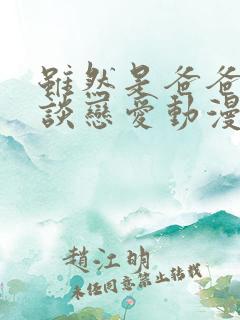 雖然是爸爸
談戀愛動漫
趙江明
未經同意禁止轉載